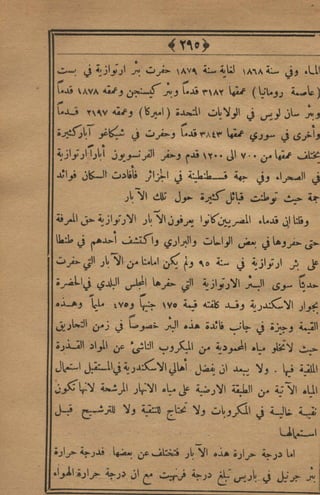 ﴿٢٩٥﴾
الماء وفي سنة ١٨٦٨ لغاية سنة ١٨٧٩ حفرت بئر ارتوازية في بست
(عاصمة رومانيا) عمقها ٣١٨٢ قدماً وبئر كيسنجن وعمقه ١٨٧٨ قدماً
وبئر سان لويس في الولايات المتحدة (اميركا) وعمقه ٢١٩٧ قدماً
وأخرى في سوري عمقها ٣٨٤٣ قدماً وحفرت في شيكاغو آبار كثيرة
يختلف عمقها من ٧٠٠ الى ١٢٠٠ قدم وحفر الفرنسويون آباراً ارتوازية
في الصحراء وفي جهة قسطنطينة في الجزائر فأفادت السكان فوائد
جمة حيث توطنت قبائل كثيرة حول تلك الآبار
وقلنا ان قدماء المصريين كانوا يعرفون الآبار الارتوازية حق المعرفة
حتى حفروها في بعض الواحات والبراري واكتشف أحدهم في طنطا
على بئر ارتوازية في سنة ٩٥ ولم يكن امامنا من الآبار التي حفرت
حديثاً سوى البئر الارتوازية التي حفرها المجلس البلدي في الحضرة
بجوار الاسكندرية وقد كلفته قيمة ١٧٥ جنيهاً و٤٧٥ مليماً وهذه
القيمة وجيزة في جانب فائدة هذه البئر خصوصاً في زمن التحاريق
حيث لا تخلو مياه المحمودية من الميكروب الناشئ عن المواد القذرة
الملقية فيها . ولا يبعد ان يفضل أهالي الاسكندرية في المستقبل استعمال
المياه الآتية من الطبقة الارضية على مياه الانهار المرشحة لانها تكون
نقية خالية في المكروبات ولا تحتاج للتنقية ولا للترشيح قبل
استعمالها
اما درجة حرارة هذه الآبار فتختلف عن بعضها فدرجة حرارة
بئر جرنيل في باريس تبلغ درجة فرنهيت مع ان درجة حرارة الهواء